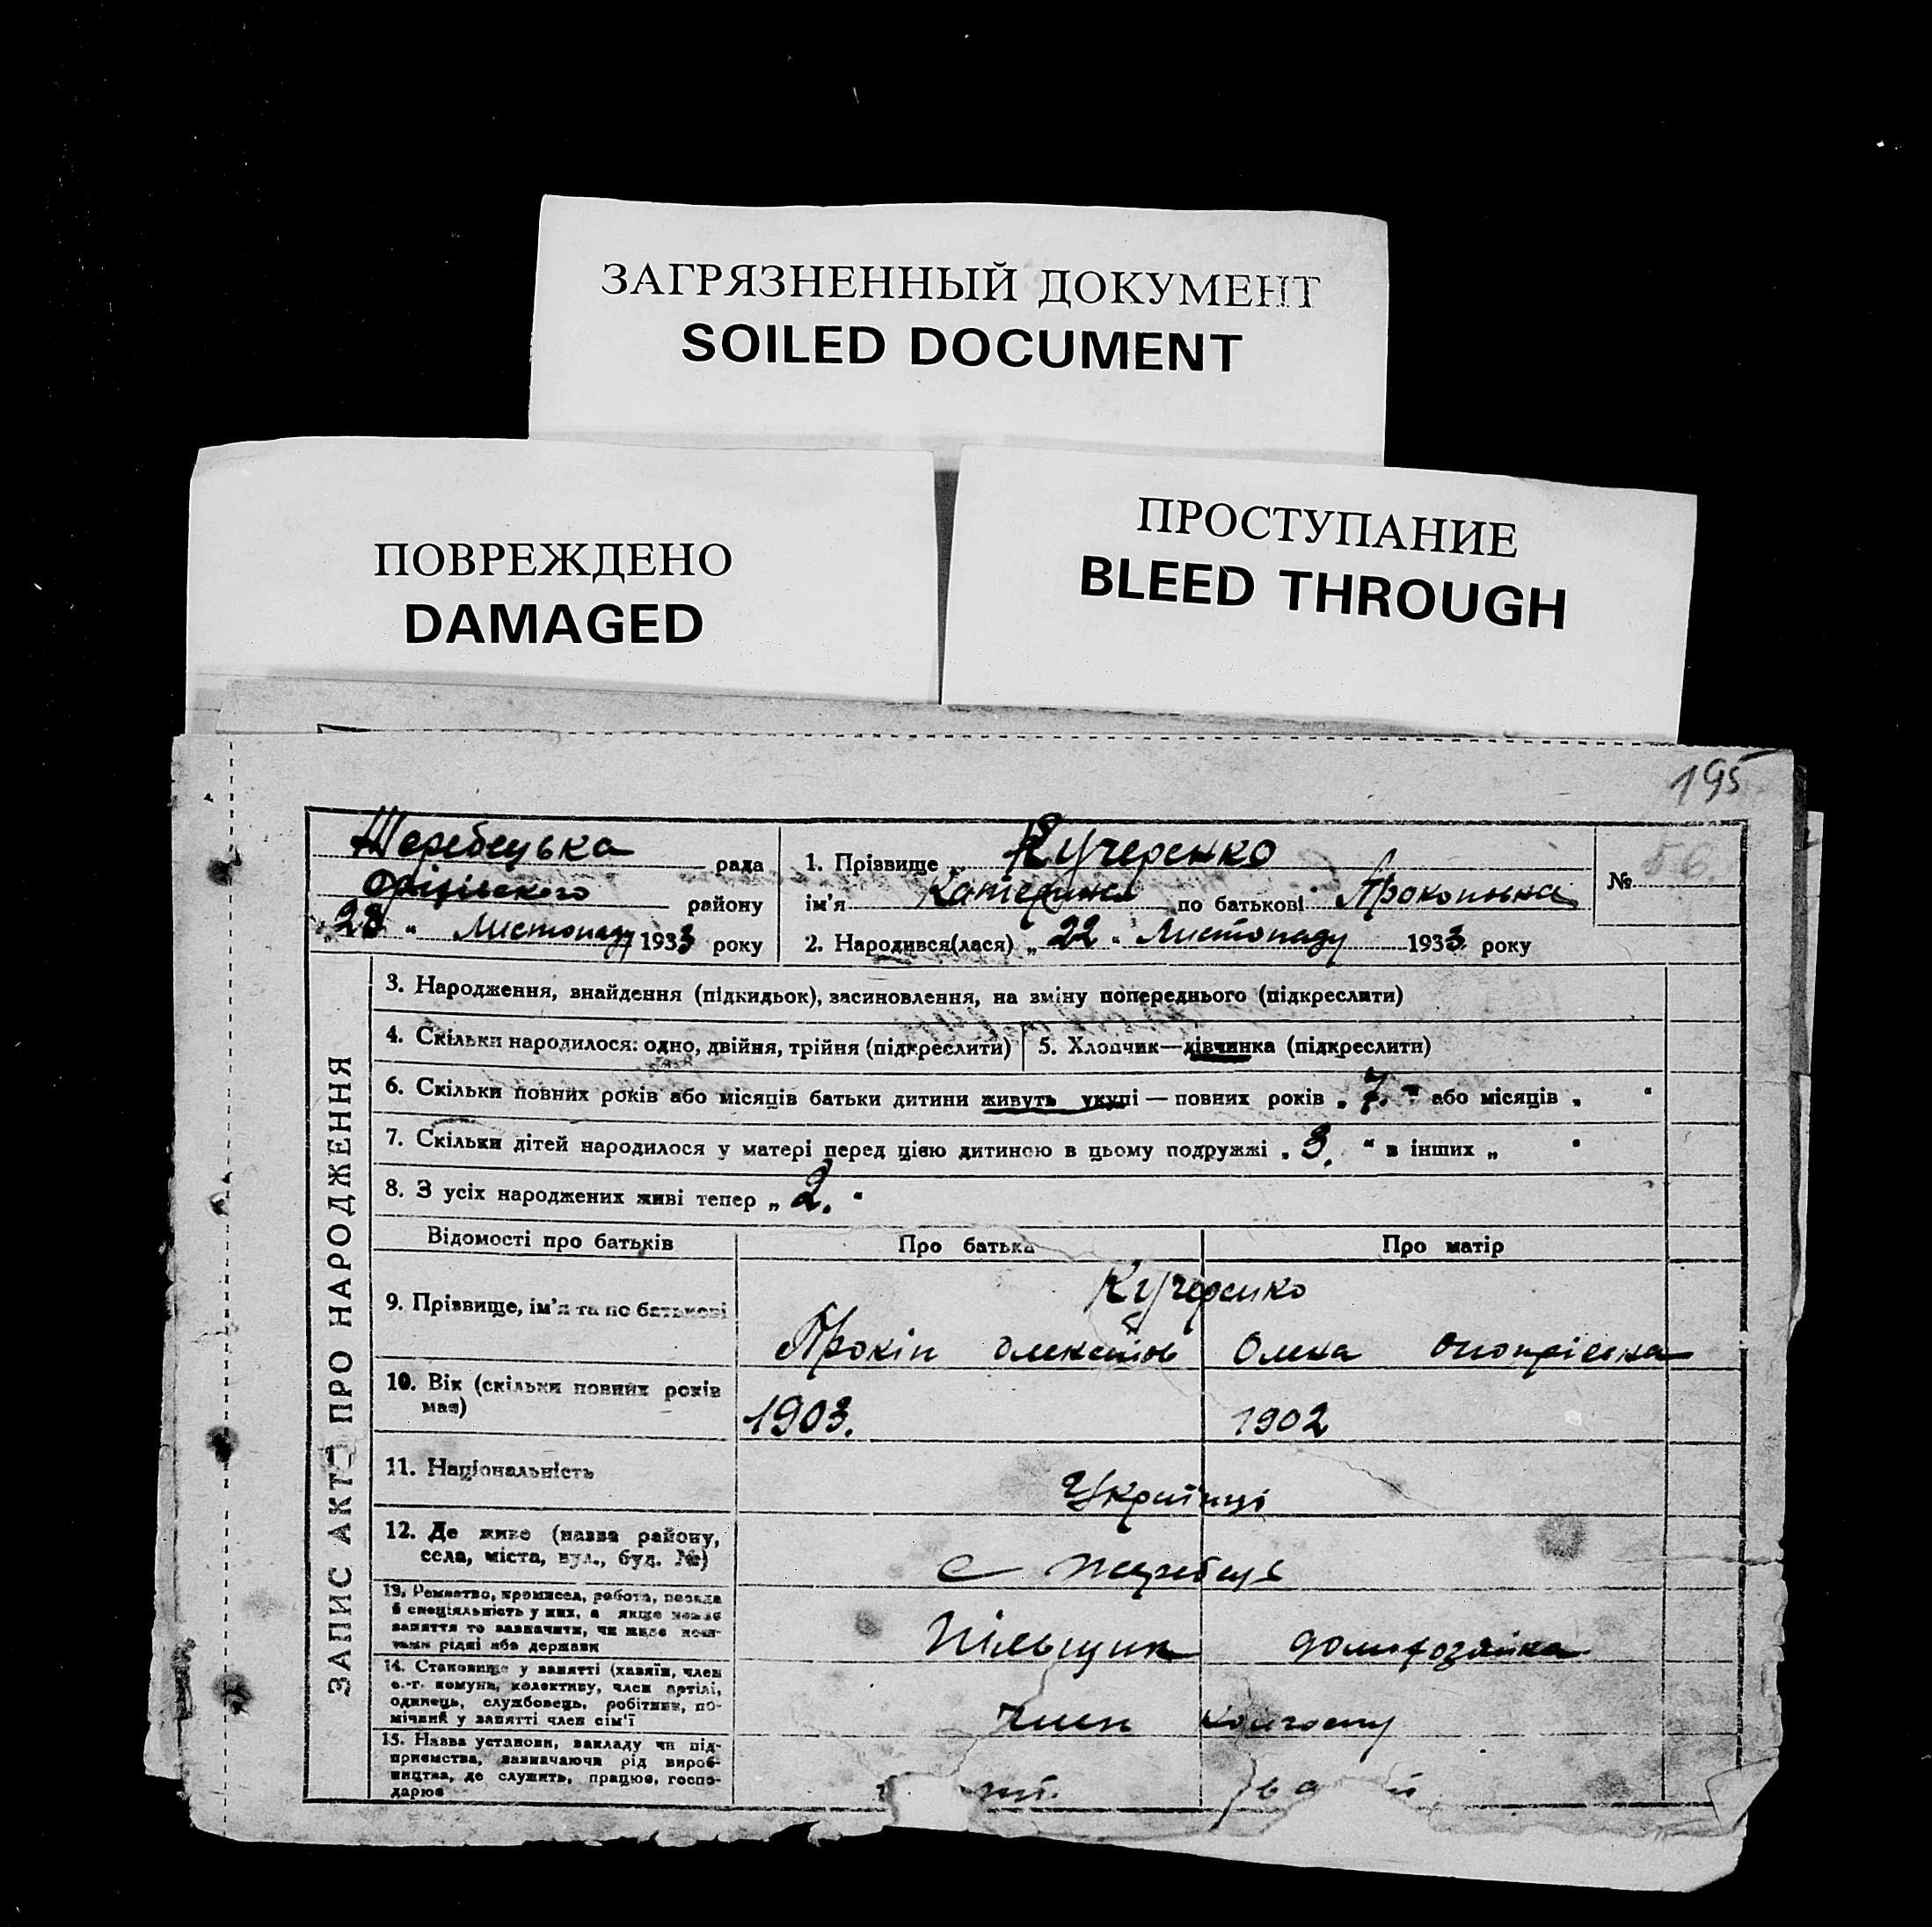 ЗАГРЯЗНЕННЫЙ ДОКУМЕНТ
SOILED DOCUMENT
ПОВРЕЖДЕНО
DAMAGED
ПРОСТУПАНИЕ
BLEED THROUGH
195
Жеребецька рада
Оріхівського району
"28" Листопаду 1933 року
1. Прізвище Кучеренко
ім'я Катерина по батькові Прокопівна
№ 56.
2. Народився(лася) „22" Листопаду 1933 року
ЗАПИС АКТ ПРО НАРОДЖЕННЯ
3. Народження, знайдення (підкидьок), засиновлення, на зміну попереднього (підкреслити)
4. Скільки народилося: одно, двійня, трійня (підкреслити) 5. Хлопчик—дівчинка (підкреслити)
6. Скільки повних років або місяців батьки дитини живуть укупі — повних років „7." або місяців „ "
7. Скільки дітей народилося у матері перед цією дитиною в цьому подружжі „3." в інших „ "
8. З усіх народжених живі тепер „2."
Відомості про батьків Про батька Про матір
9. Прізвище, ім'я та по батькові Кучеренко
Прокіп Олексієв Олена Оноприєвна
10. Вік (скільки повних років
має) 1903. 1902
11. Національність Українці
12. Де живе (назва району,
села, міста, вул., буд. №) с Жеребець
13. Ремество, промисел, робота, посада
й спеціяльність у них, а якщо немає
заняття то зазначити, чи живе кош-
тами рідні або держави Пільщик домохозяйка
14. Становище у занятті (хазяїн, член
с.-г. комуни, колективу, член артілі,
одинець, службовець, робітник, по-
мічний у занятті член сім'ї член колгоспу
15. Назва установи, закладу чи під-
приємства, зазначаючи рід вироб-
ництва, де служить, працює, госпо-
дарює